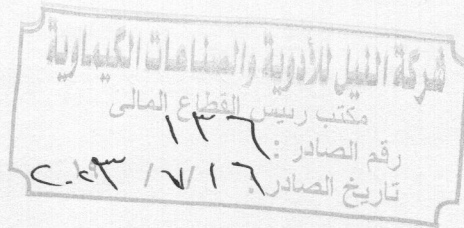 شركة النيل للأدوية والصناعات الكيماوية
مكتب رئيس القطاع المالى
رقم الصادر : ١٣٦
تاريخ الصادر : ١٦ / ٧ / ٢٠٢٣